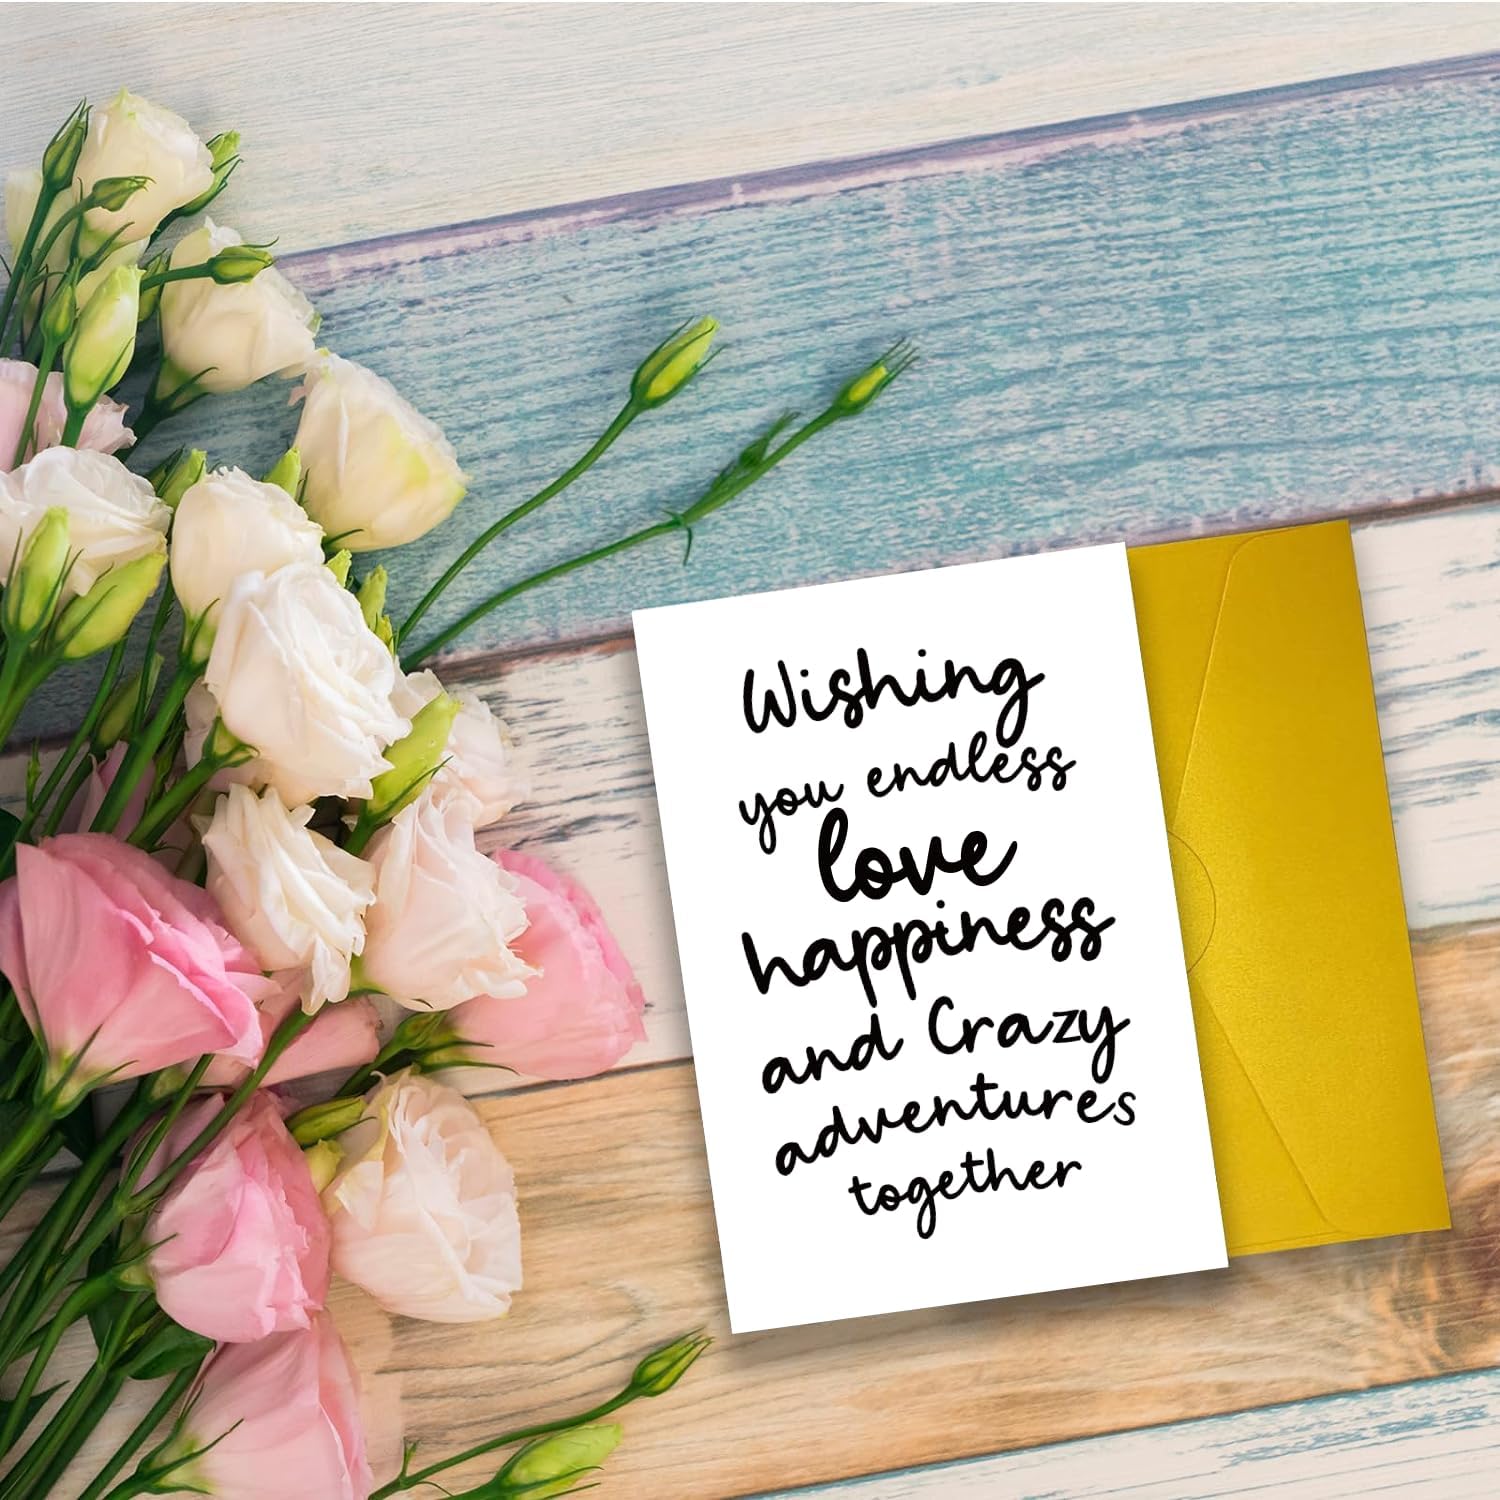 Wishing
you endless
love
happiness
and Crazy
adventures
together